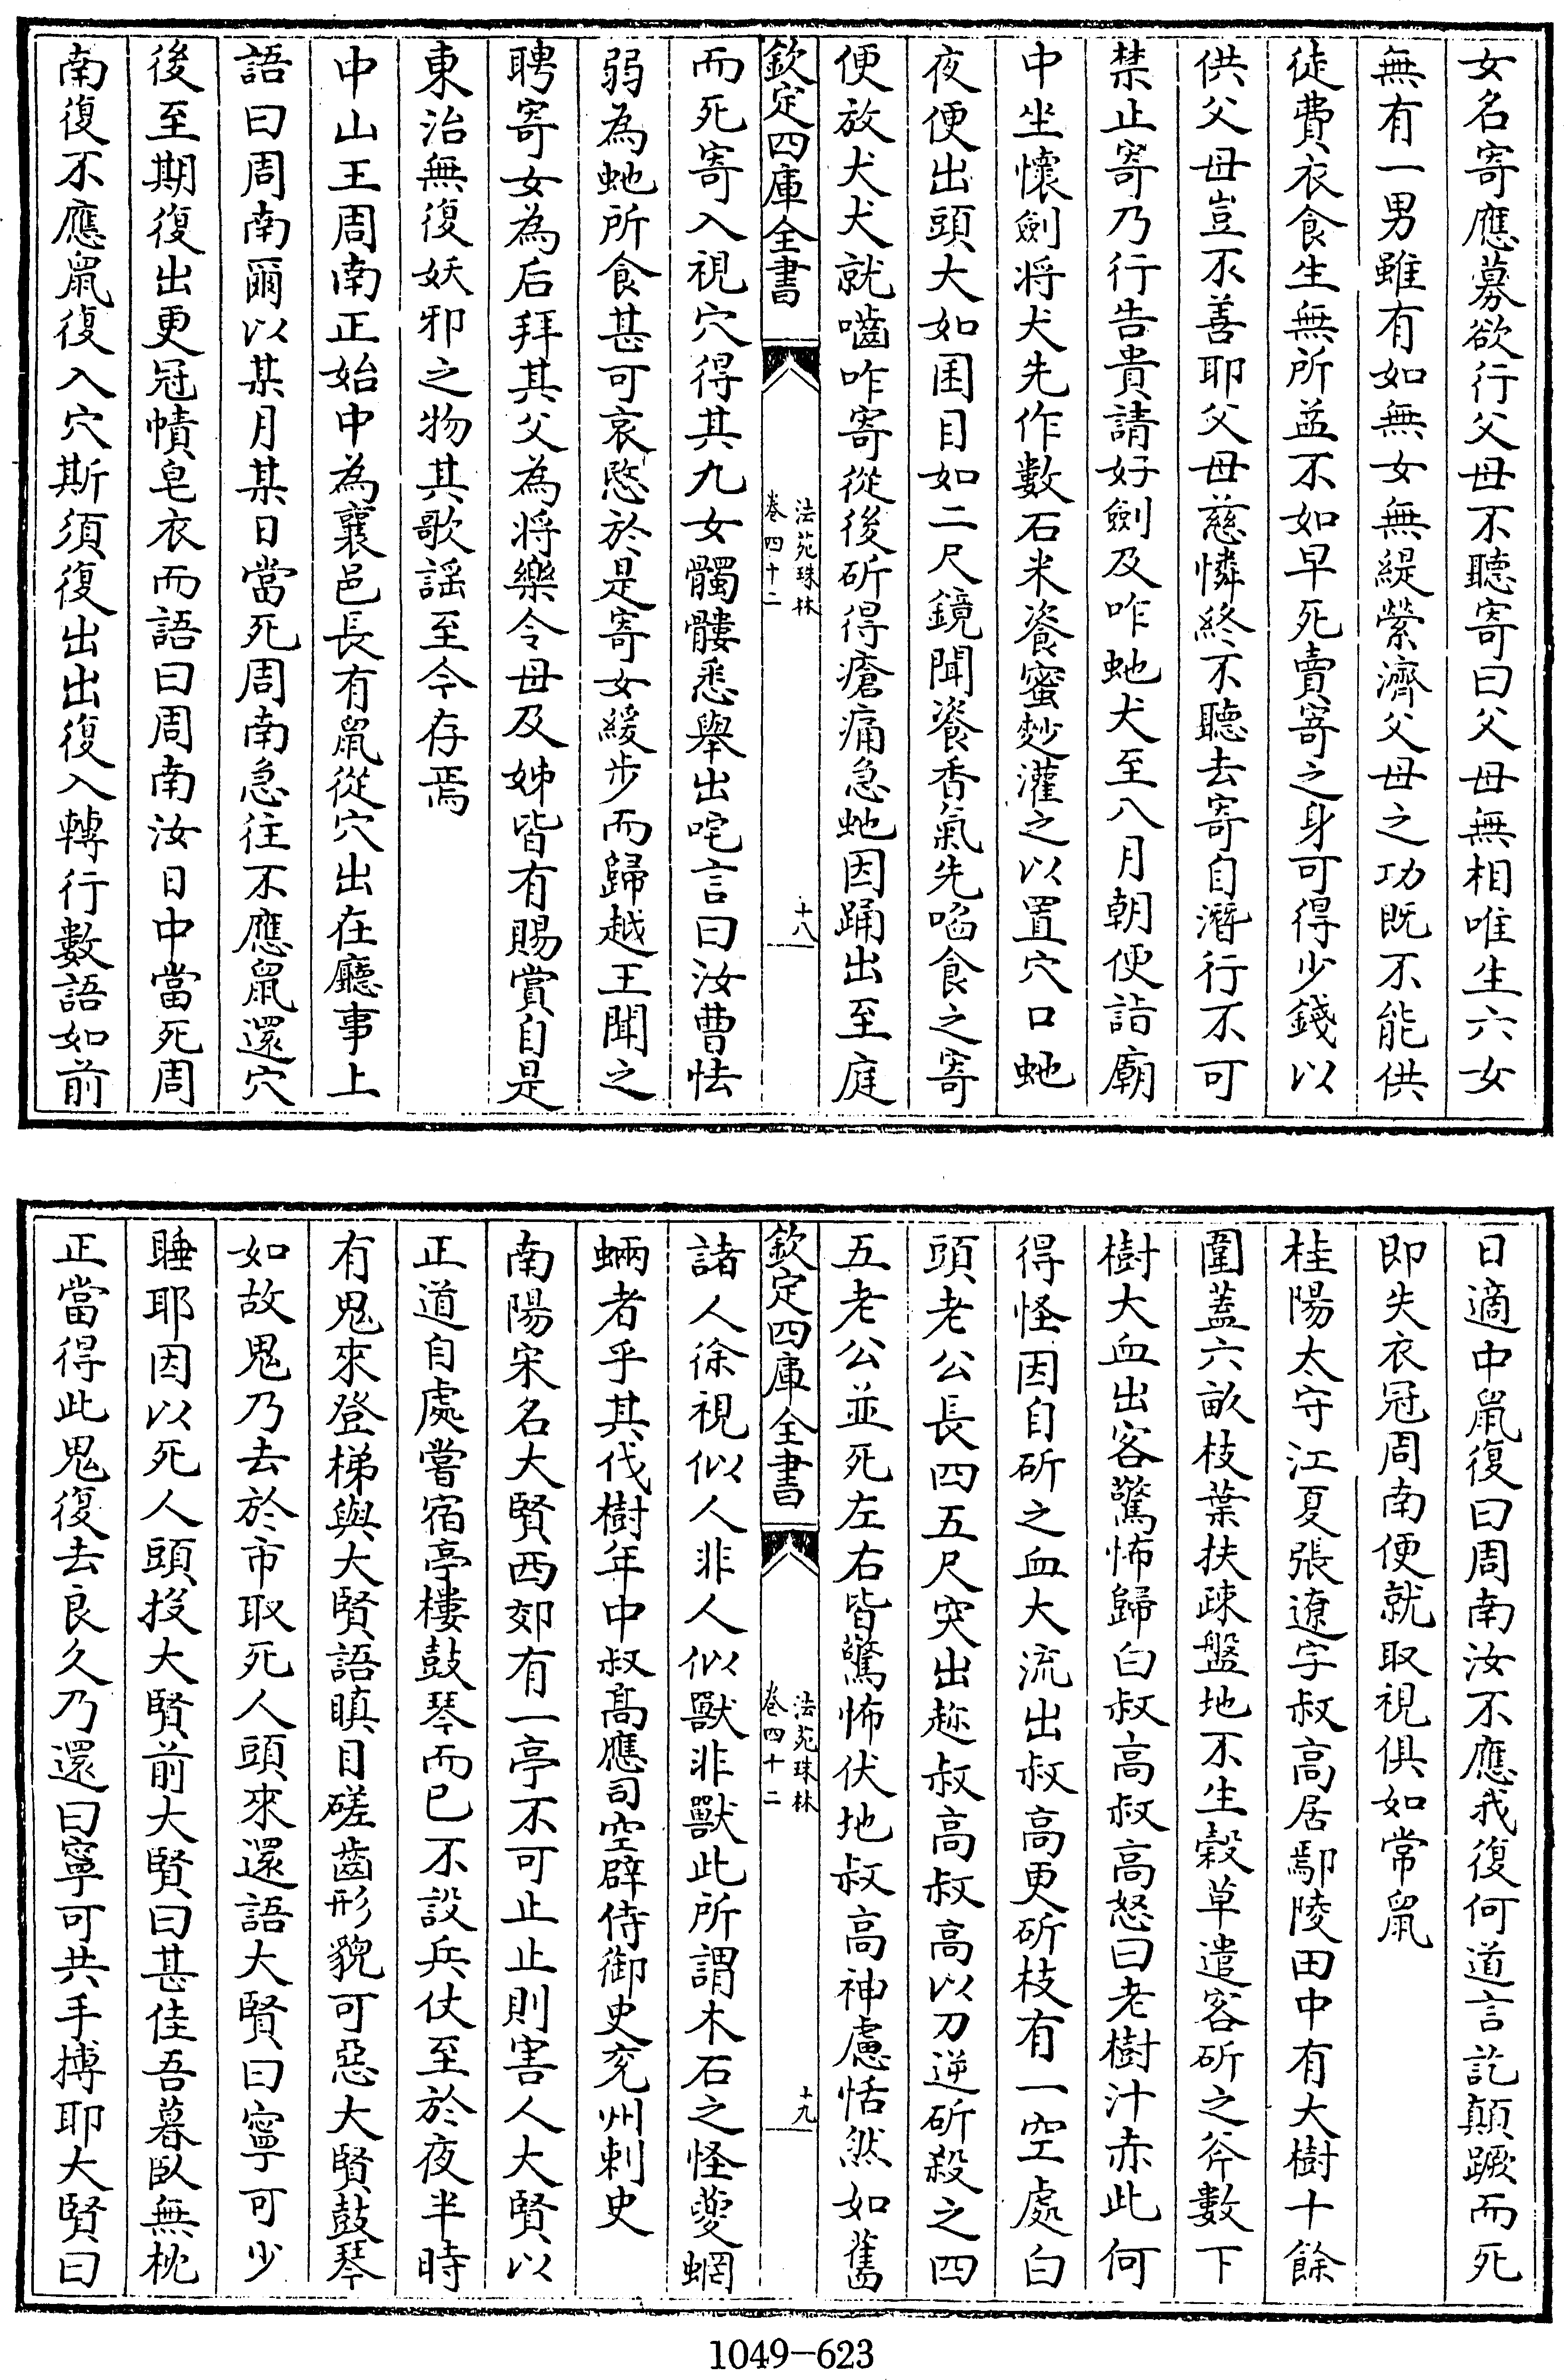 女名寄應募欲行父母不聽寄曰父母無相唯生六女
無有一男雖有如無女無緹縈濟父母之功既不能供
徒費衣食生無所益不如早死賣寄之身可得少錢以
供父母豈不善耶父母慈憐終不聽去寄自潛行不可
禁止寄乃行告貴請好劍及咋虵犬至八月朝便詣廟
中坐懷劍将犬先作數石米餈蜜麨灌之以置穴口虵
夜便出頭大如囷目如二尺鏡聞餈香氣先啗食之寄
便放犬犬就嚙咋寄從後斫得瘡痛急虵因踊出至庭
欽定四庫全書
法苑珠林
卷四十二
十八
而死寄入視穴得其九女髑髏悉舉出咤言曰汝曹怯
弱為虵所食甚可哀愍於是寄女緩步而歸越王聞之
聘寄女為后拜其父為将樂令母及姊皆有賜賞自是
東治無復妖邪之物其歌謡至今存焉
中山王周南正始中為襄邑長有鼠從穴出在廳事上
語曰周南爾以某月某日當死周南急往不應鼠還穴
後至期復出更冠幘皂衣而語曰周南汝日中當死周
南復不應鼠復入穴斯須復出出復入轉行數語如前
日適中鼠復曰周南汝不應我復何道言訖顛蹶而死
即失衣冠周南便就取視俱如常鼠
桂陽太守江夏張遼字叔高居鄢陵田中有大樹十餘
圍蓋六畝枝葉扶疎盤地不生穀草遣客斫之斧數下
樹大血出客驚怖歸白叔高叔高怒曰老樹汁赤此何
得怪因自斫之血大流出叔高更斫枝有一空處白
頭老公長四五尺突出趂叔高叔高以刀逆斫殺之四
五老公並死左右皆驚怖伏地叔高神慮恬然如舊
欽定四庫全書
法苑珠林
卷四十二
十九
諸人徐視似人非人似獸非獸此所謂木石之怪夔蝄
蜽者乎其伐樹年中叔高應司空辟侍御史兖州刺史
南陽宋名大賢西郊有一亭不可止止則害人大賢以
正道自處嘗宿亭樓鼓琴而已不設兵仗至於夜半時
有鬼來登梯與大賢語瞋目磋齒形貌可惡大賢鼓琴
如故鬼乃去於市取死人頭來還語大賢曰寧可少
睡耶因以死人頭投大賢前大賢曰甚佳吾暮臥無枕
正當得此鬼復去良久乃還曰寧可共手搏耶大賢曰
1049-623